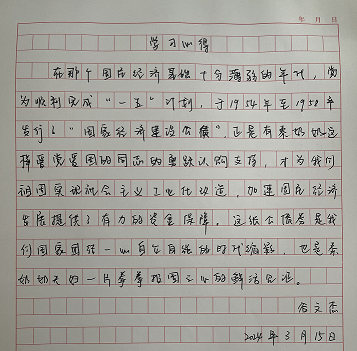 年 月 日
学习心得
在那个国民经济基础十分薄弱的年代,党
为顺利完成“一五”计划,于1954年至1958年
发行了“国家经济建设公债”。正是有秦奶奶这
样爱党爱国的同志的踊跃认购支持,才为我们
祖国实现社会主义工业化改造,加速国民经济
发展提供了有力的资金保障。这纸公债券是我
们国家团结一心自立自强的时代缩影,也是秦
奶奶夫妇一片拳拳报国之心的鲜活见证。
文杰
2024年3月15日